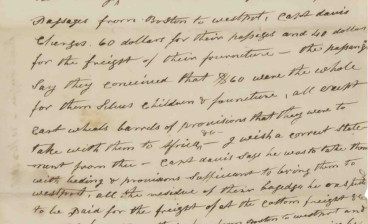 Passages from Boston to westport, Capt davis
Charges. 60 dollars for their passages and 40 dollars
for the freight of their fourneture – the passeng
Say they conceived that $60 were the whole
for them Selves Children & founeture, all except
cart wheals barrels of provisions that they were to
take with them to Africa &c – I wish a correct state
ment from thee – Capt davis Says he was to take them
with beding & provisions sufficient to bring them to
westport, all the residue of their bagedge he was
to be paid for the freight of at the cottom freight &c
Boston to westport and